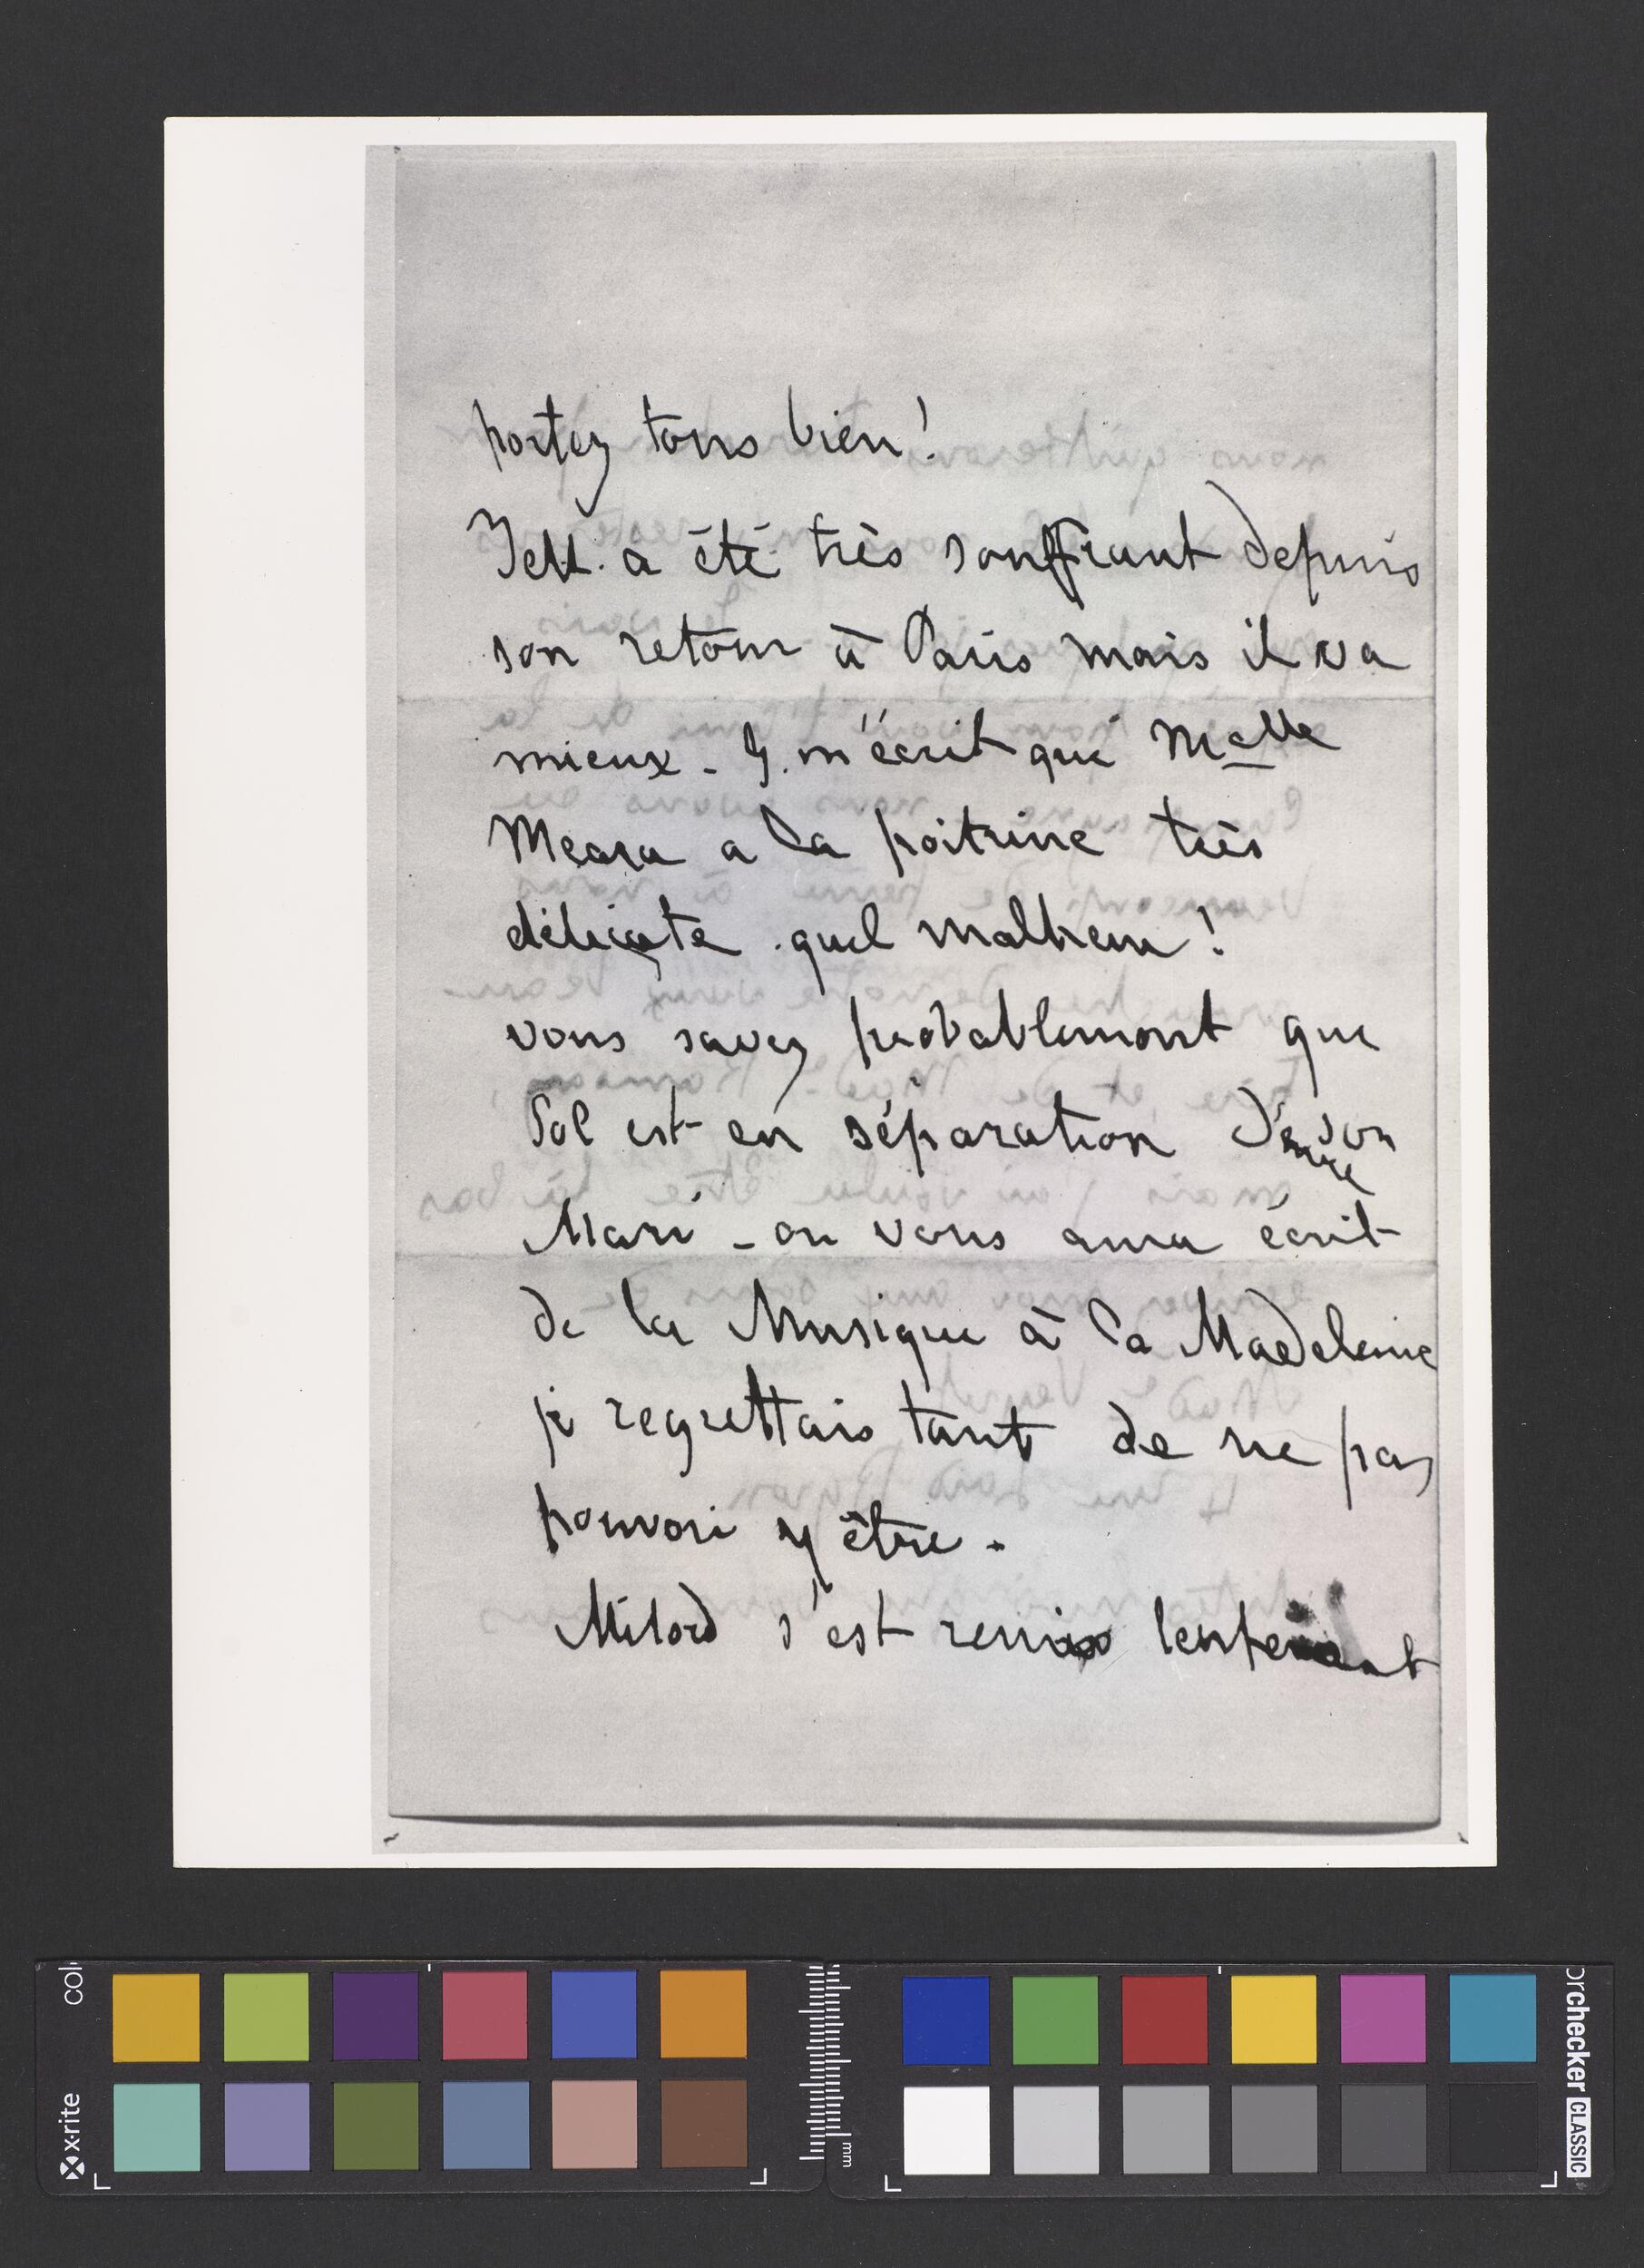 portez tous bien!
Jell. a été très souffrant depuis
son retour à Paris mais il va
mieux - Y. m'écrit que Melle
Meara a la poitrine très
délicate quel malheur!
vous savez probablement que
Sol est en séparation d'avec son
Mari - on vous aura écrit
de la Musique à la Madeleine
je regrettais tant de ne pas
pouvoir y être.
Milord s'est remis lentement
x-rite
mm
CLASSIC